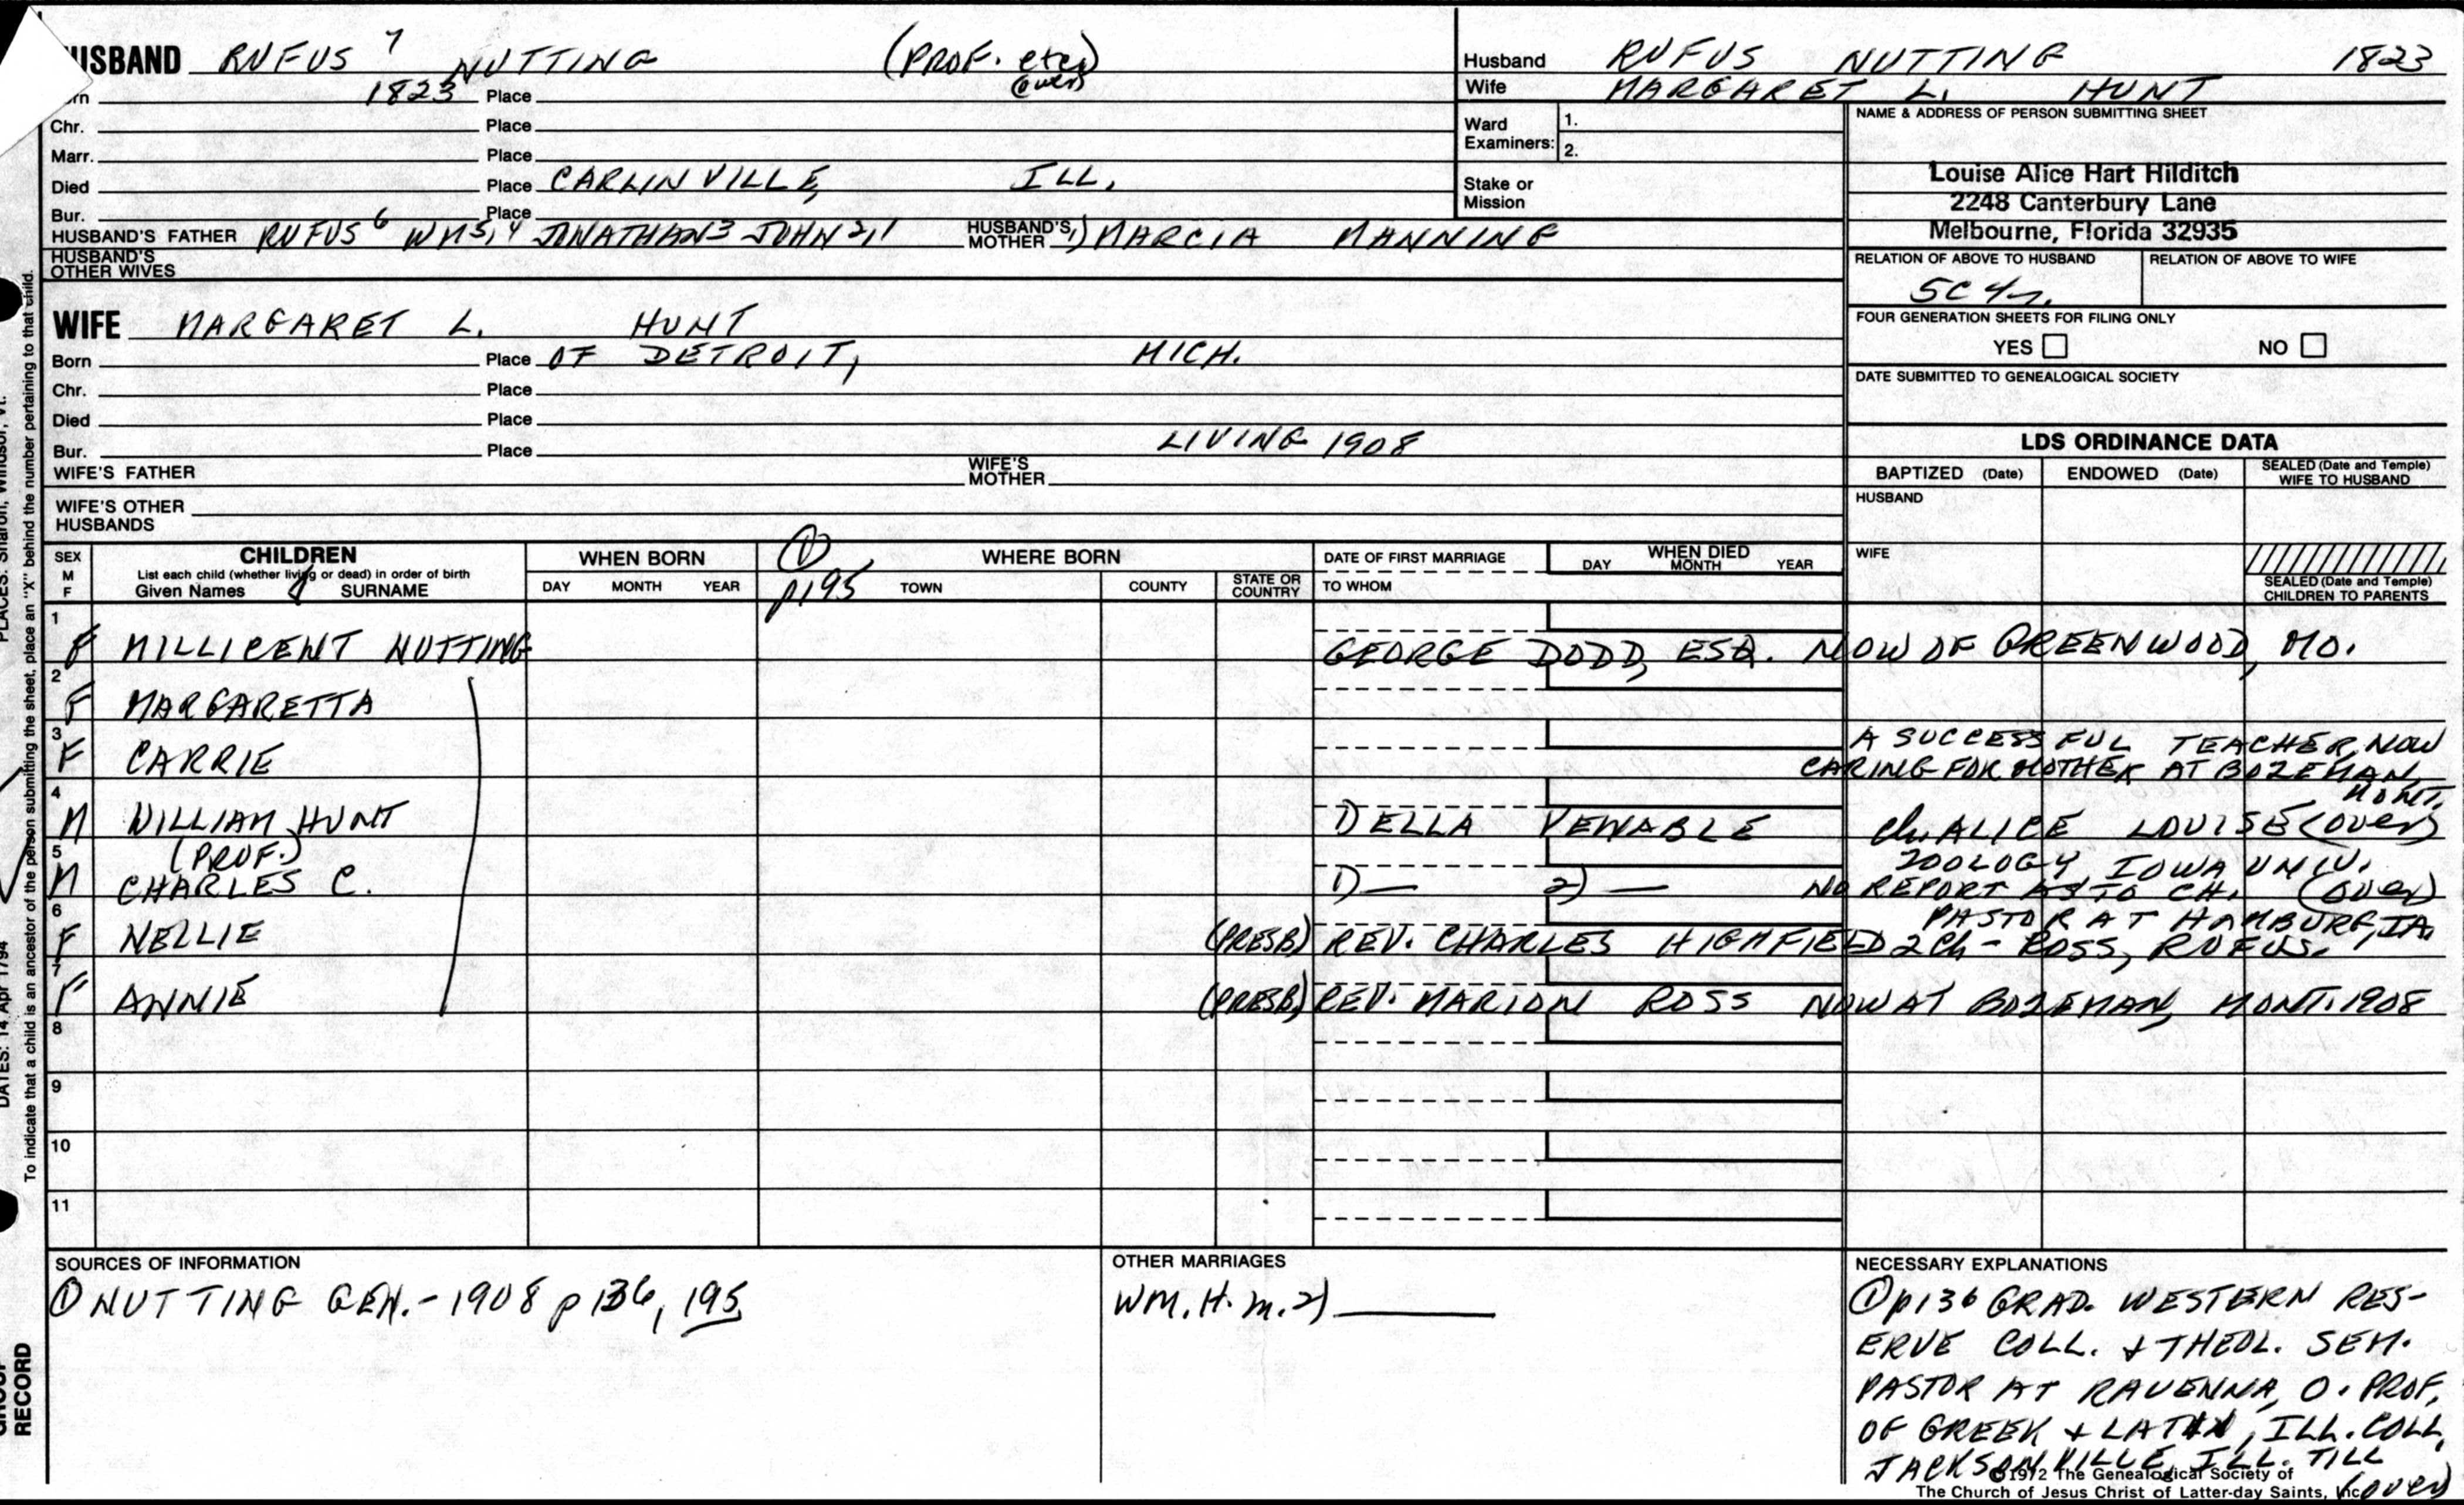 HUSBAND RUFUS 7 NUTTING (PROF. etc) (over)
1823 Place
Chr. Place
Marr. Place
Died Place CARLINVILLE, ILL.
Bur. Place
HUSBAND'S FATHER RUFUS 6 WM 5,4 JONATHAN 3 JOHN 2,1 HUSBAND'S MOTHER 1) MARCIA MANNING
HUSBAND'S OTHER WIVES
Husband RUFUS NUTTING 1823
Wife MARGARET L. HUNT
Ward Examiners: 1.
2.
Stake or Mission
NAME & ADDRESS OF PERSON SUBMITTING SHEET
Louise Alice Hart Hilditch
2248 Canterbury Lane
Melbourne, Florida 32935
RELATION OF ABOVE TO HUSBAND RELATION OF ABOVE TO WIFE
5C4r.
FOUR GENERATION SHEETS FOR FILING ONLY
YES NO
DATE SUBMITTED TO GENEALOGICAL SOCIETY
WIFE MARGARET L. HUNT
Born Place OF DETROIT, MICH.
Chr. Place
Died Place
Bur. Place LIVING 1908
WIFE'S FATHER WIFE'S MOTHER
WIFE'S OTHER HUSBANDS
LDS ORDINANCE DATA
BAPTIZED (Date) ENDOWED (Date) SEALED (Date and Temple) WIFE TO HUSBAND
HUSBAND
WIFE
SEALED (Date and Temple) CHILDREN TO PARENTS
SEX M F
CHILDREN
List each child (whether living or dead) in order of birth
Given Names SURNAME
WHEN BORN
DAY MONTH YEAR
① p195
WHERE BORN
TOWN COUNTY STATE OR COUNTRY
DATE OF FIRST MARRIAGE
TO WHOM
WHEN DIED
DAY MONTH YEAR
1 F MILLICENT NUTTING GEORGE DODD, ESQ. NOW OF GREENWOOD, MO.
2 F MARGARETTA
3 F CARRIE A SUCCESSFUL TEACHER, NOW
CARING FOR MOTHER AT BOZEMAN, MONT.
4 M WILLIAM HUNT DELLA VENABLE ch. ALICE LOUISE (over)
5 M (PROF.) CHARLES C. 1)— 2)— ZOOLOGY IOWA UNIV.
NO REPORT AS TO CH. (over)
6 F NELLIE (PRESB) REV. CHARLES HIGHFIELD PASTOR AT HAMBURG, IA.
2 Ch - ROSS, RUFUS.
7 F ANNIE (PRESB) REV. MARION ROSS NOW AT BOZEMAN, MONT. 1908
8
9
10
11
SOURCES OF INFORMATION
① NUTTING GEN. - 1908 p 136, 195
OTHER MARRIAGES
WM. H. m. 2)
NECESSARY EXPLANATIONS
① p136 GRAD. WESTERN RES-
ERVE COLL. + THEOL. SEM.
PASTOR AT RAVENNA, O. PROF.
OF GREEK + LATIN, ILL. COLL,
JACKSONVILLE, ILL. TILL
(over)
©1972 The Genealogical Society of
The Church of Jesus Christ of Latter-day Saints, Inc.
To indicate that a child is an ancestor of the person submitting the sheet, place an "X" behind the number pertaining to that child.
DATES: 14 Apr 1794
PLACES: Sharon, Windsor, Vt.
GROUP
RECORD